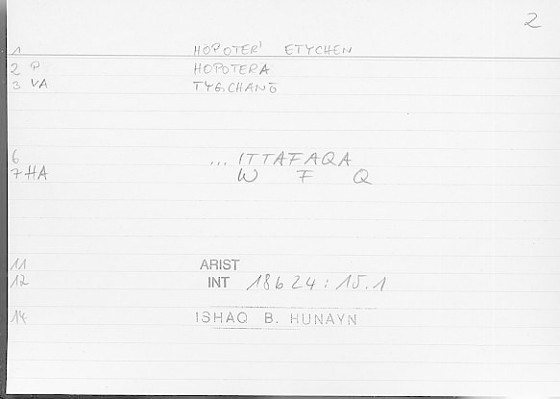 2
1 HOPOTER' ETYCHEN
2 P HOPOTERA
3 VA
6 ... ITTAFAQA
7 HA W F Q
11 ARIST
12 INT 18624:15.1
14 ISHAQ B. HUNAYN